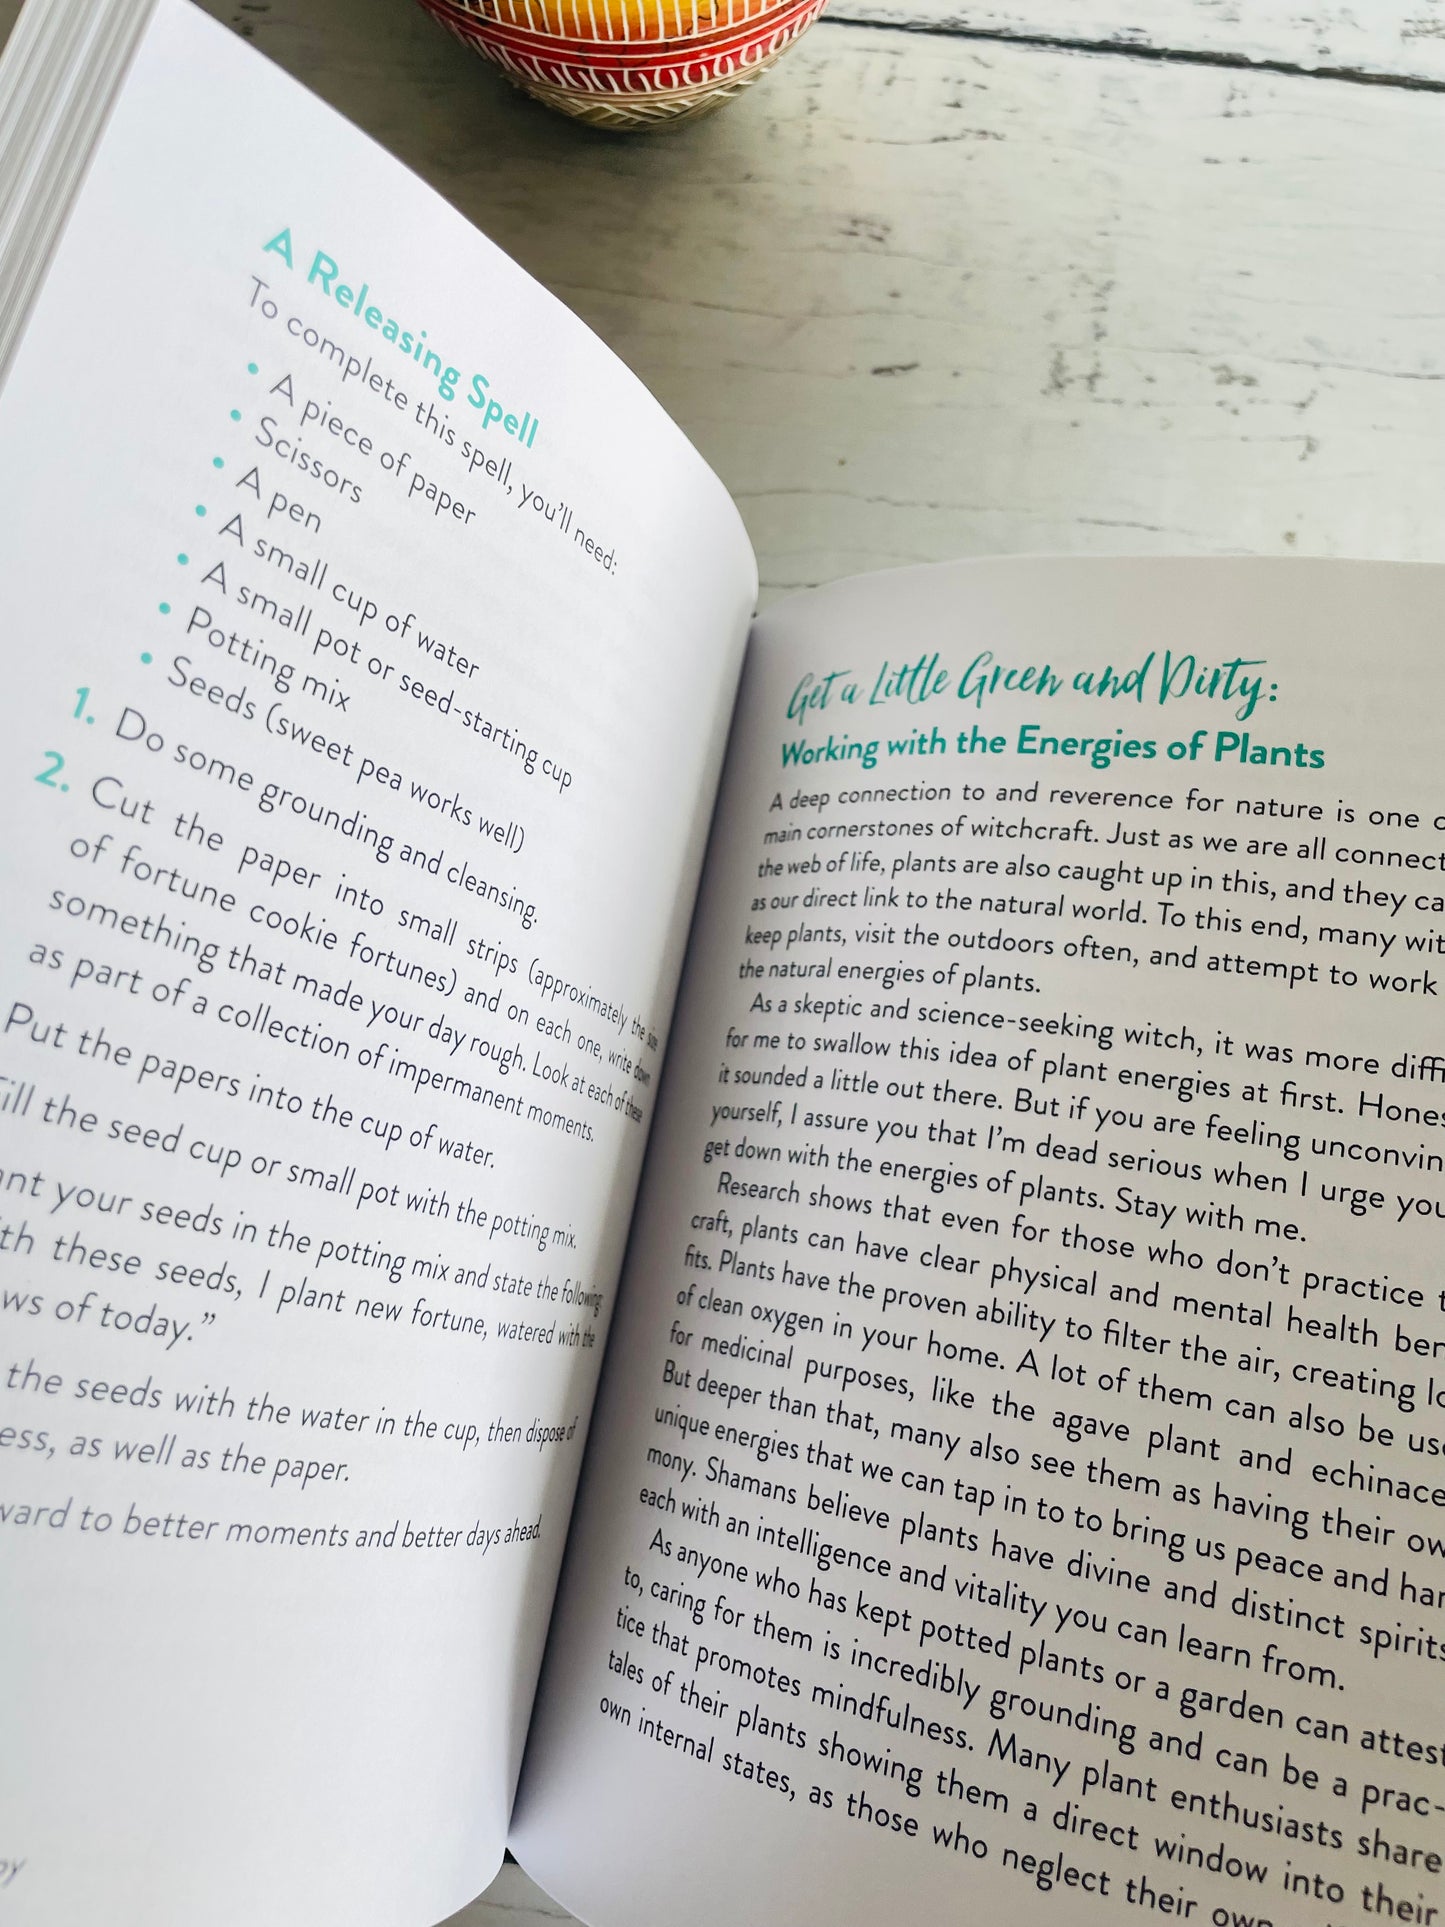 A Releasing Spell
To complete this spell, you'll need:
• A piece of paper
• Scissors
• A pen
• A small cup of water
• A small pot or seed-starting cup
• Potting mix
• Seeds (sweet pea works well)
1. Do some grounding and cleansing.
2. Cut the paper into small strips (approximately the size
of fortune cookie fortunes) and on each one, write down
something that made your day rough. Look at each of these
as part of a collection of impermanent moments.
Put the papers into the cup of water.
Fill the seed cup or small pot with the potting mix.
your seeds in the potting mix and state the following:
these seeds, I plant new fortune, watered with the
of today.”
the seeds with the water in the cup, then dispose of
as well as the paper.
to better moments and better days ahead.
Get a Little Green and Dirty:
Working with the Energies of Plants
A deep connection to and reverence for nature is one
main cornerstones of witchcraft. Just as we are all connect
the web of life, plants are also caught up in this, and they ca
as our direct link to the natural world. To this end, many wit
keep plants, visit the outdoors often, and attempt to work
the natural energies of plants.
As a skeptic and science-seeking witch, it was more diffi
for me to swallow this idea of plant energies at first. Hones
it sounded a little out there. But if you are feeling unconvin
yourself, I assure you that I'm dead serious when I urge you
get down with the energies of plants. Stay with me.
Research shows that even for those who don't practice
craft, plants can have clear physical and mental health ben
fits. Plants have the proven ability to filter the air, creating lo
of clean oxygen in your home. A lot of them can also be use
for medicinal purposes, like the agave plant and echinace
But deeper than that, many also see them as having their ow
unique energies that we can tap in to to bring us peace and har
mony. Shamans believe plants have divine and distinct spirits
each with an intelligence and vitality you can learn from.
As anyone who has kept potted plants or a garden can attest
to, caring for them is incredibly grounding and can be a prac-
tice that promotes mindfulness. Many plant enthusiasts share
tales of their plants showing them a direct window into their
own internal states, as those who neglect their own